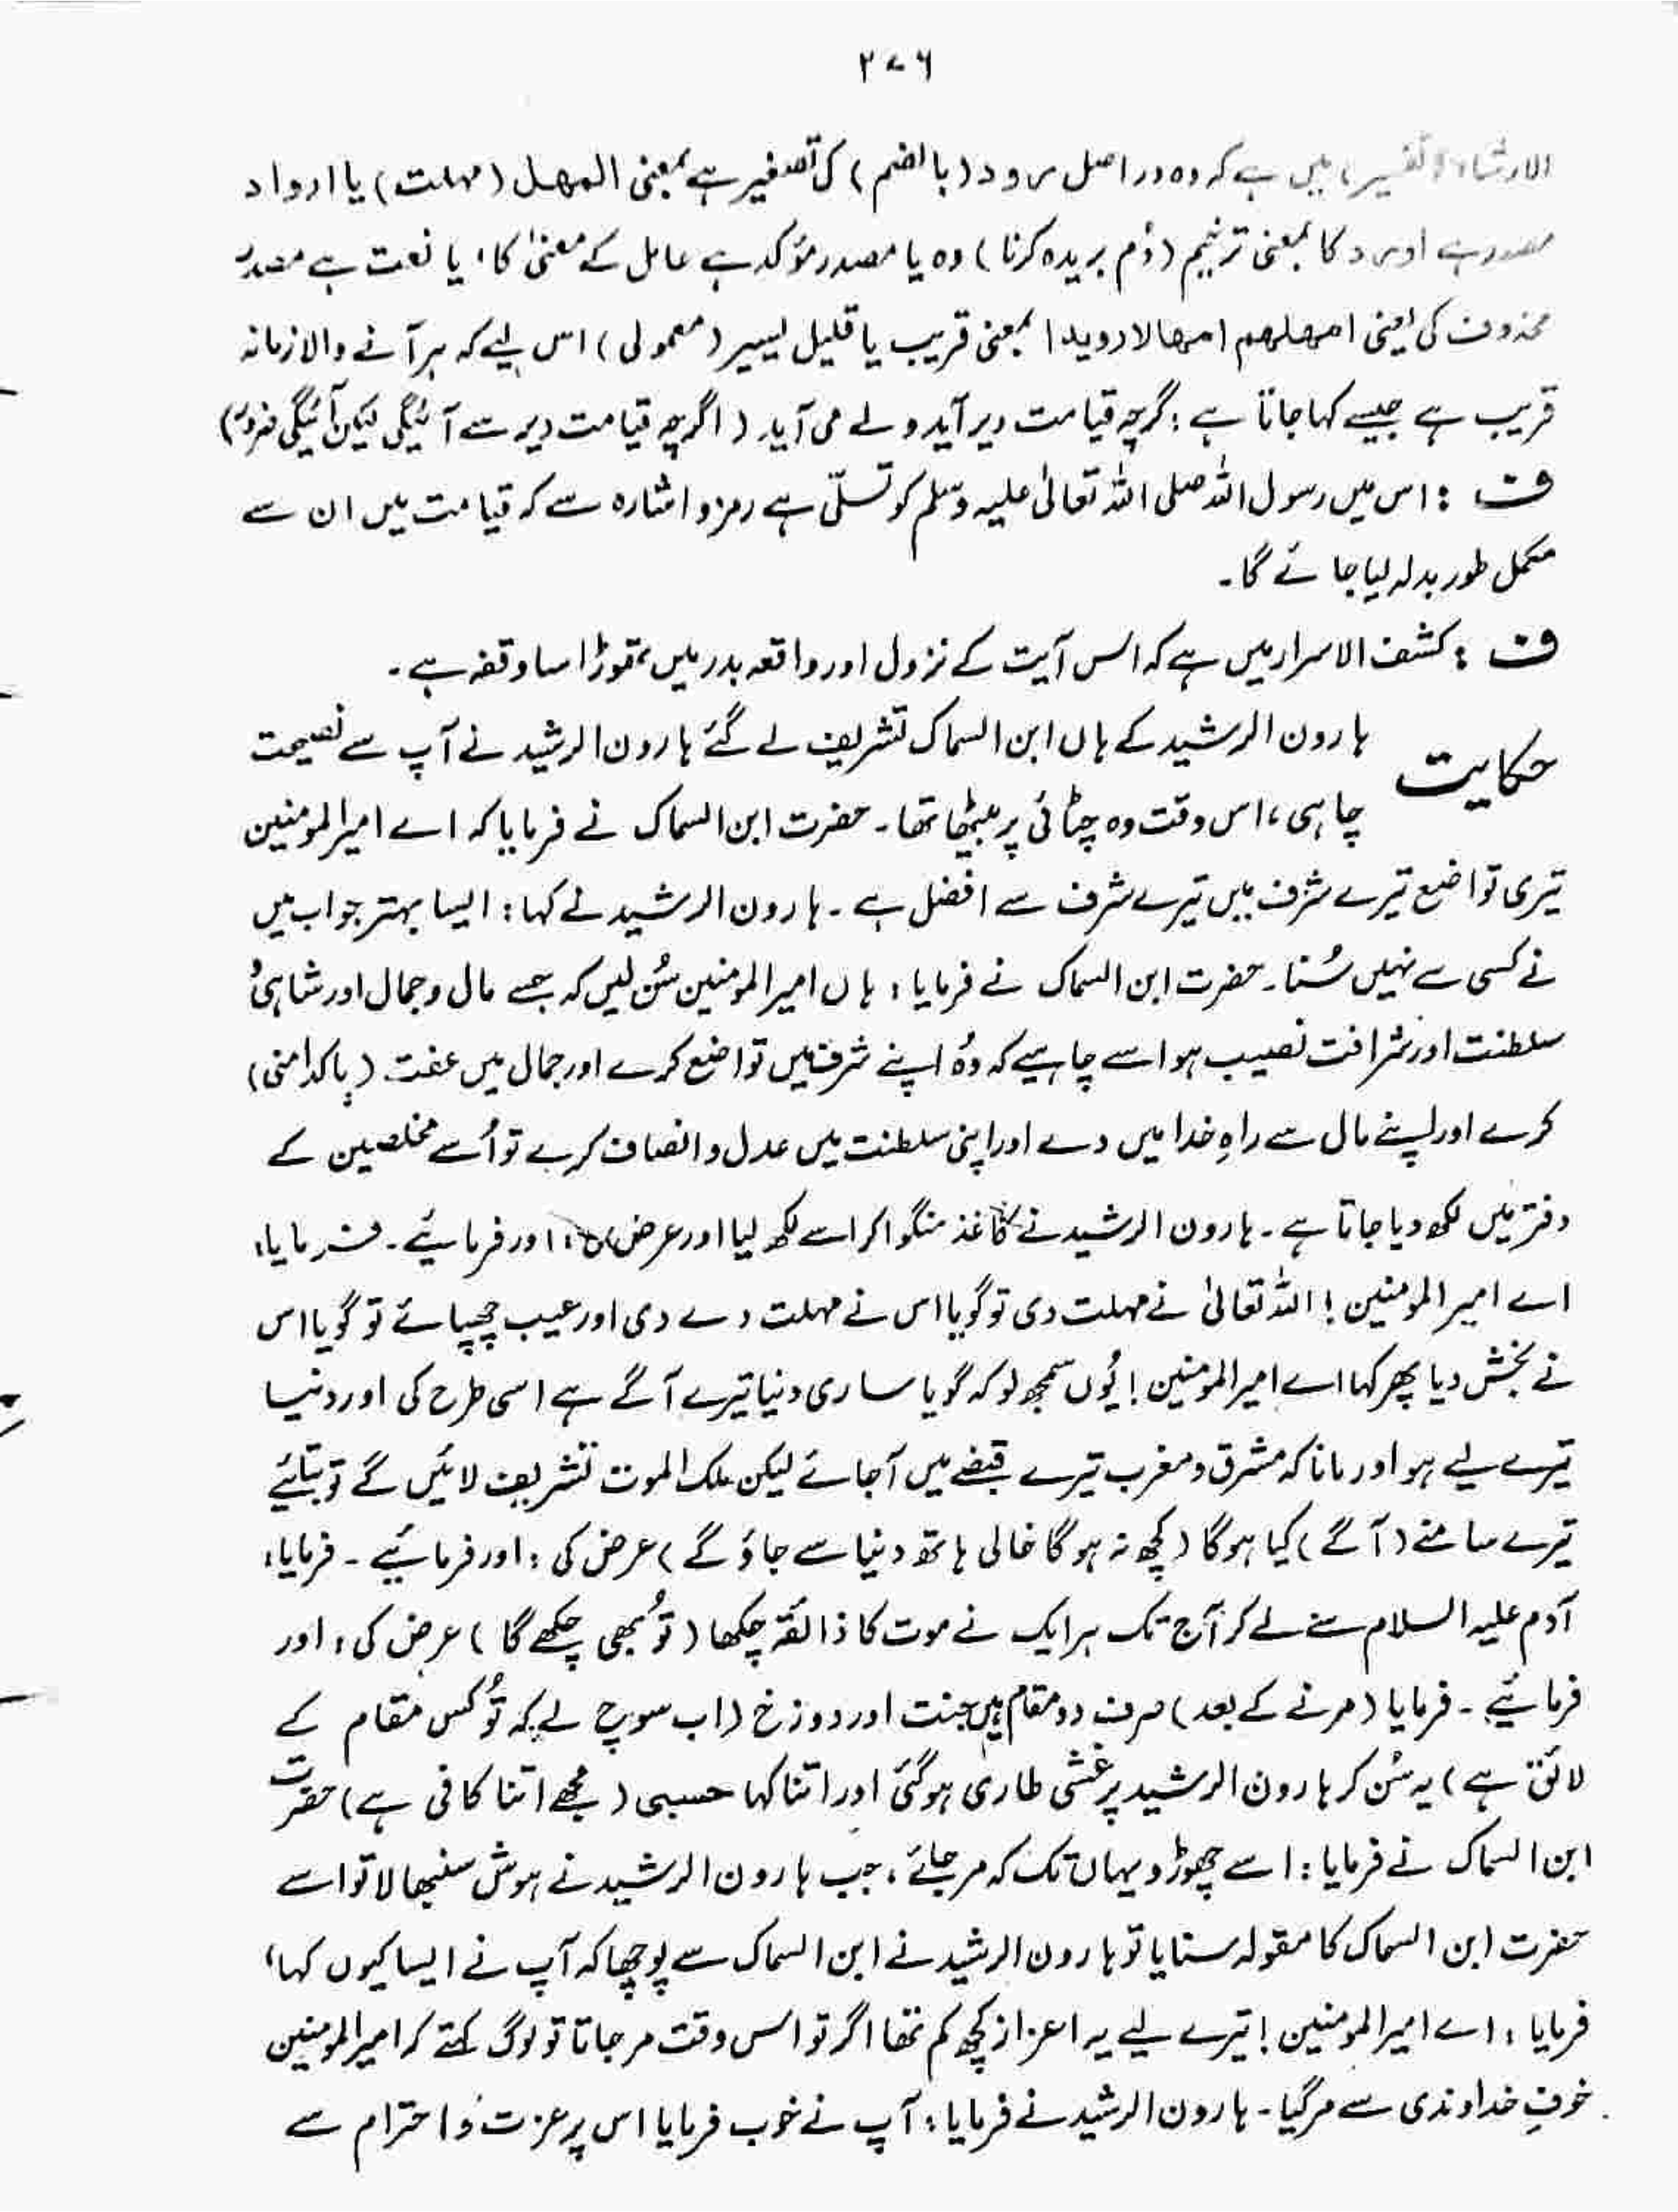 ۲۷۶
الارشاد (تفسیر) میں ہے کہ وہ دراصل رود (بالضم) کی تصغیر ہے بمعنی المھل (مہلت) یا ارواد
مصدر ہے اورد کا بمعنی ترخیم (دُم بریدہ کرنا) وہ یا مصدر مؤکد ہے عامل کے معنیٰ کا، یا نعت ہے مصدر
محذوف کی یعنی امھلھم امھالا رویدا بمعنی قریب یا قلیل یسیر (معمولی) اس لیے کہ ہر آنے والا زمانہ
قریب ہے جیسے کہا جاتا ہے : گرچہ قیامت دیر آید ولے می آید (اگرچہ قیامت دیر سے آئیگی لیکن آئیگی ضرور)
ف : اس میں رسول اللہ صلی اللہ تعالیٰ علیہ وسلم کو تسلّی ہے رمز و اشارہ سے کہ قیامت میں ان سے
مکمل طور بدلہ لیا جائے گا۔
ف : کشف الاسرار میں ہے کہ اس آیت کے نزول اور واقعہ بدر میں تھوڑا سا وقفہ ہے۔
حکایت ہارون الرشید کے ہاں ابن السماک تشریف لے گئے ہارون الرشید نے آپ سے نصیحت
چاہی، اس وقت وہ چٹائی پر بیٹھا تھا۔ حضرت ابن السماک نے فرمایا کہ اے امیر المومنین
تیری تواضع تیرے شرف میں تیرے شرف سے افضل ہے۔ ہارون الرشید نے کہا : ایسا بہتر جواب میں
نے کسی سے نہیں سُنا۔ حضرت ابن السماک نے فرمایا : ہاں امیر المومنین سُن لیں کہ جسے مال و جمال اور شاہی
سلطنت اور شرافت نصیب ہو اسے چاہیے کہ وُہ اپنے شرف میں تواضع کرے اور جمال میں عفت (پاکدامنی)
کرے اور اپنے مال سے راہِ خدا میں دے اور اپنی سلطنت میں عدل و انصاف کرے تو اُسے مخلصین کے
دفتر میں لکھ دیا جاتا ہے۔ ہارون الرشید نے کاغذ منگوا کر اسے لکھ لیا اور عرض کی : اور فرمائیے۔ فرمایا :
اے امیر المومنین! اللہ تعالیٰ نے مہلت دی تو گویا اس نے مہلت دے دی اور عیب چھپائے تو گویا اس
نے بخش دیا پھر کہا اے امیر المومنین! یُوں سمجھ لو کہ گویا ساری دنیا تیرے آگے ہے اسی طرح کی اور دنیا
تیرے لیے ہو اور مانا کہ مشرق و مغرب تیرے قبضے میں آجائے لیکن ملک الموت تشریف لائیں گے تو بتائیے
تیرے سامنے (آگے) کیا ہوگا (کچھ نہ ہوگا خالی ہاتھ دنیا سے جاؤ گے) عرض کی : اور فرمائیے۔ فرمایا :
آدم علیہ السلام سے لے کر آج تک ہر ایک نے موت کا ذائقہ چکھا (تُو بھی چکھے گا) عرض کی : اور
فرمائیے۔ فرمایا (مرنے کے بعد) صرف دو مقام ہیں جنت اور دوزخ (اب سوچ لے کہ تُو کس مقام کے
لائق ہے) یہ سُن کر ہارون الرشید پر غشی طاری ہوگئی اور اتنا کہا حسبی (مجھے اتنا کافی ہے) حضرت
ابن السماک نے فرمایا : اسے چھوڑو یہاں تک کہ مر جائے۔ جب ہارون الرشید نے ہوش سنبھالا تو اسے
حضرت ابن السماک کا مقولہ سنایا تو ہارون الرشید نے ابن السماک سے پوچھا کہ آپ نے ایسا کیوں کہا،
فرمایا : اے امیر المومنین! تیرے لیے یہ اعزاز کچھ کم تھا اگر تو اس وقت مر جاتا تو لوگ کہتے کہ امیر المومنین
خوفِ خداوندی سے مرگیا۔ ہارون الرشید نے فرمایا : آپ نے خوب فرمایا اس پر عزت و احترام سے